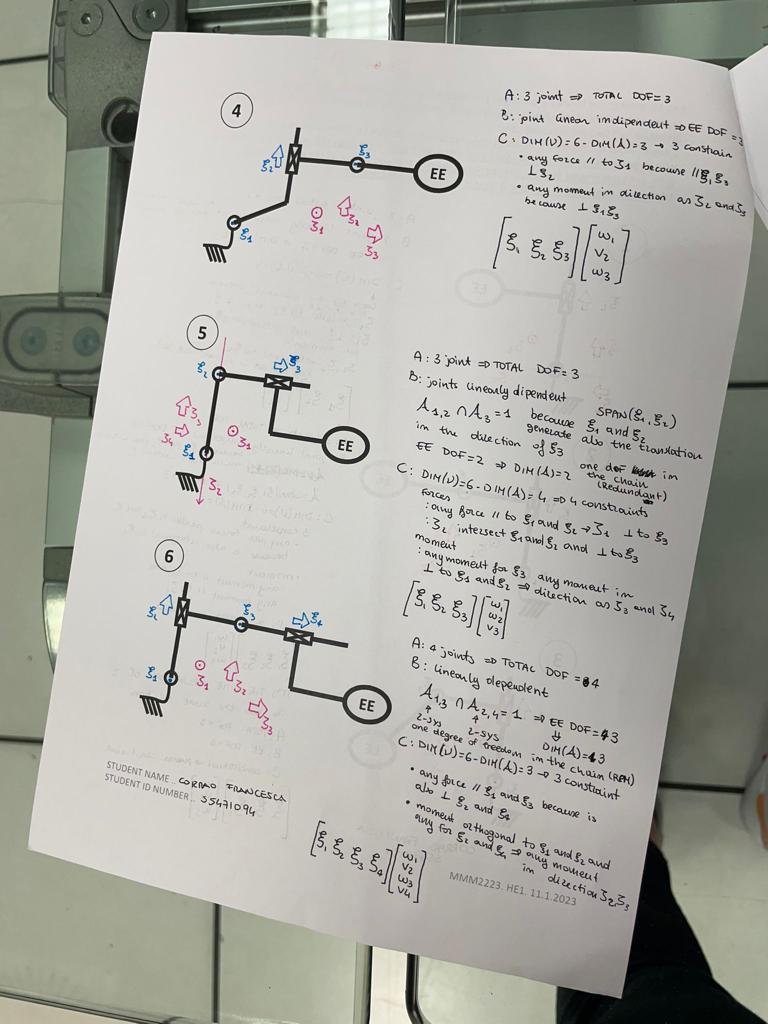 4
ξ2
ξ3
EE
ξ1
ζ1
ζ2
ζ3
A: 3 joint ⇒ TOTAL DOF = 3
B: joint linear independent ⇒ EE DOF = 3
C: DIM(V) = 6 - DIM(A) = 3 → 3 constrain
• any force // to ζ1 becouse // ξ1 ξ3
⊥ ξ2
• any moment in direction as ζ2 and ζ3
because ⊥ ξ1 ξ3
[ξ1 ξ2 ξ3] [ω1 v2 ω3]
5
ξ2
ξ3
ζ3
ζ4
ζ1
ξ1
EE
ζ2
A: 3 joint ⇒ TOTAL DOF = 3
B: joints linearly dipendent
A1,2 ∩ A3 = 1 because ξ1 and ξ2 SPAN(ξ1, ξ2)
generate also the translation
in the direction of ξ3
EE DOF = 2 ⇒ DIM(A) = 2 one dof in
the chain
(Redundant)
C: DIM(V) = 6 - DIM(A) = 4 ⇒ 4 constraints
forces
: any force // to ξ1 and ξ2 → ζ1 ⊥ to ξ3
: ζ2 intersect ξ1 and ξ2 and ⊥ to ξ3
moment
: any moment for ξ3 any moment in
⊥ to ξ1 and ξ2 ⇒ direction as ζ3 and ζ4
[ξ1 ξ2 ξ3] [ω1 ω2 v3]
6
ξ2
ξ3
ξ4
ξ1
ζ1
ζ2
ζ3
EE
A: 4 joints ⇒ TOTAL DOF = 4
B: linearly dependent
A1,3 ∩ A2,4 = 1 ⇒ EE DOF = 3
2-sys 2-sys DIM(A) = 3
one degree of freedom in the chain
C: DIM(V) = 6 - DIM(A) = 3 → 3 constraint
• any force // ξ1 and ξ3 because is
also ⊥ ξ2 and ξ4
• moment orthogonal to ξ1 and ξ2 and
any for ξ2 and ξ4 ⇒ any moment
in direction ζ2, ζ3
[ξ1 ξ2 ξ3 ξ4] [ω1 v2 ω3 v4]
STUDENT NAME.. CORRAO FRANCESCA
STUDENT ID NUMBER.. S5471094
MMM2223. HE1. 11.1.2023